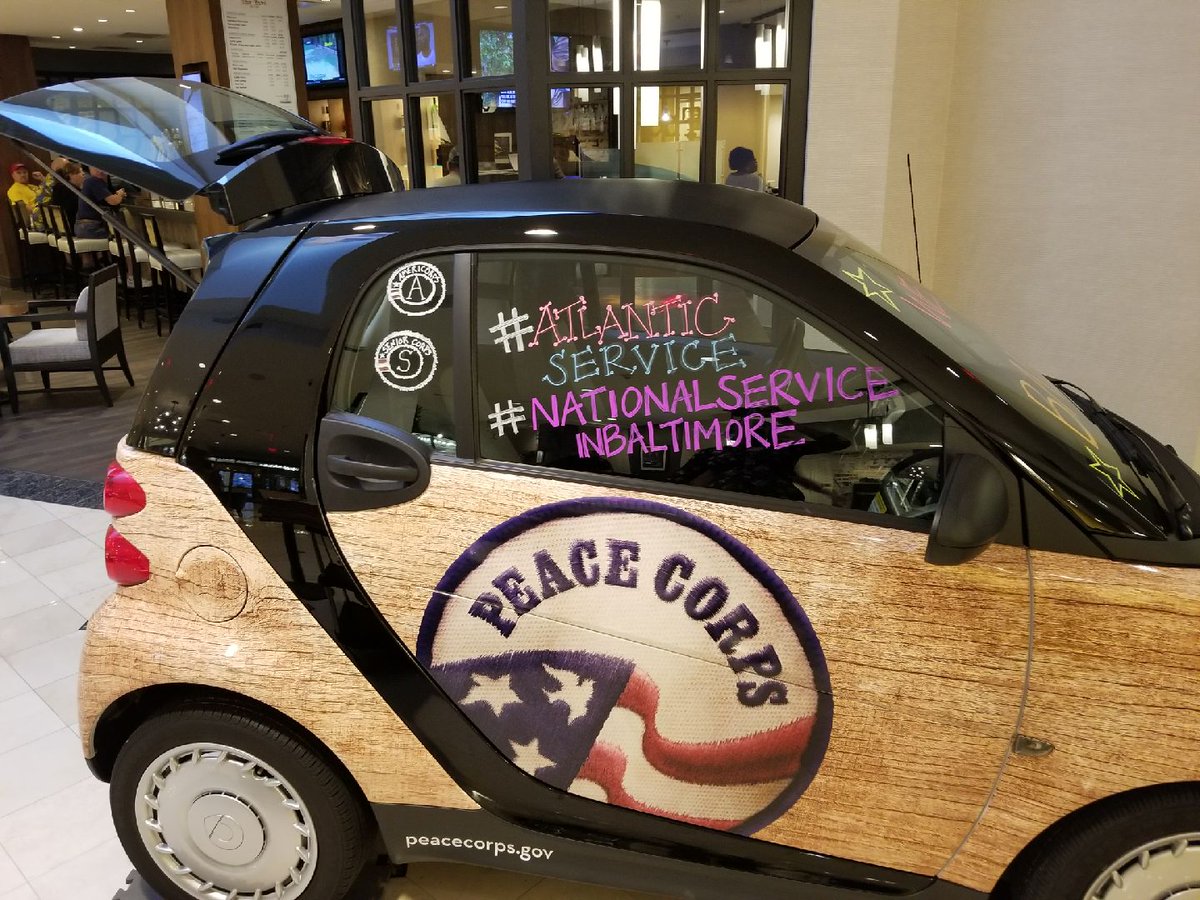 AMERICORPS
A
SENIOR CORPS
S
#ATLANTIC
SERVICE
#NATIONALSERVICE
INBALTIMORE
PEACE CORPS
peacecorps.gov